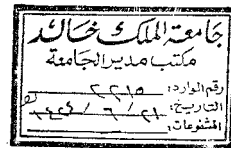 جامعة الملك خالد
مكتب مدير الجامعة
رقم الوارد: ٢٢١٥
التاريخ: ٢١ / ٦ / ١٤٢٤هـ
المشفوعات: